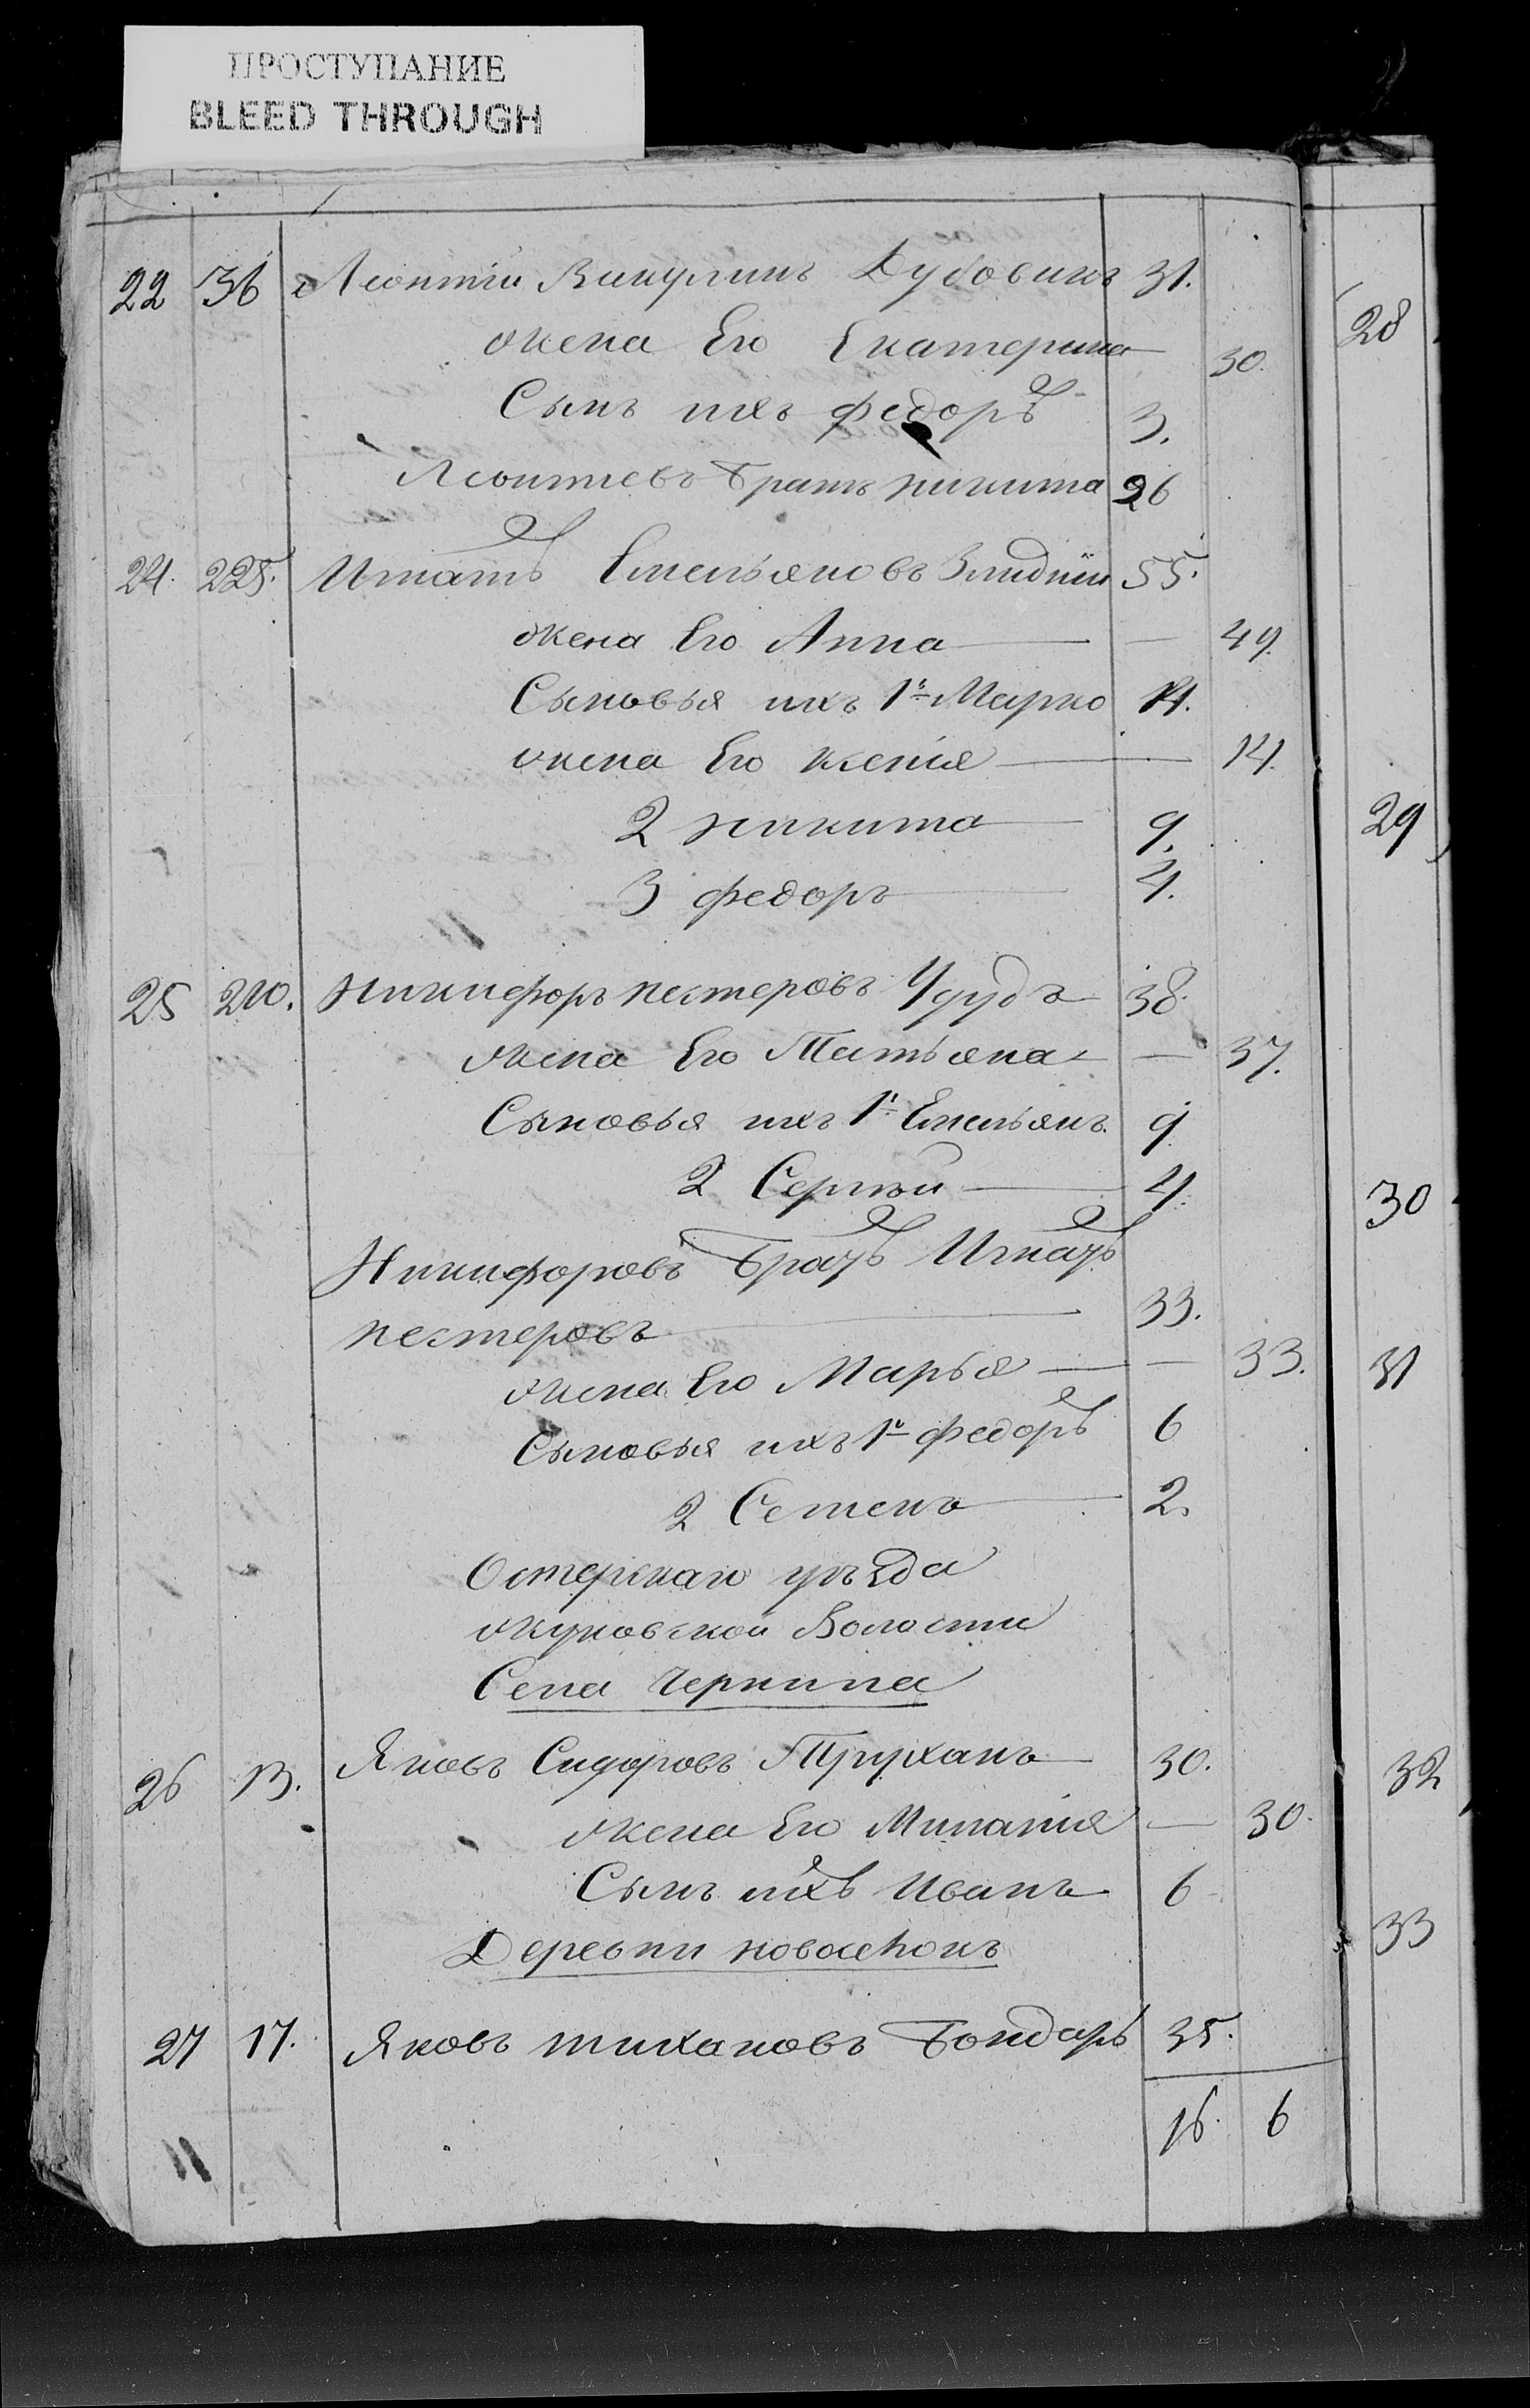 ПРОСТУПАНИЕ
BLEED THROUGH
22 36 Леонтiи Викулинъ Дубовикъ 31.
жена Его Екатерина 30.
Сынъ ихъ федоръ 3.
Леонтиевъ братъ никита 26
24. 225. Игнатъ Емельяновъ 55.
жена Его Анна — 49.
Сыновья ихъ 1й Марко 14.
жена Его ксенiя — 14.
2 никита 9.
3 федоръ 4.
25 210. никифоръ нестеровъ 38.
жена Его Татьяна — 37.
Сыновья ихъ 1й Емельянъ 9
2 Сергѣй 4.
Никифоровъ братъ Игнатъ
нестеровъ 33.
жена Его Марья — 33.
Сыновья ихъ 1й федоръ 6
2 Семенъ 2.
Остерскаго уѣзда
жуковской Волости
Села Чернина
26 13. Яковъ Сидоровъ Труханъ 30.
жена Его Миланiя — 30.
Сынъ ихъ Иванъ 6
Деревни новоселокъ
27 17. Яковъ тихановъ Бондарь 35.
16. 6
28
29
30
31
32
33